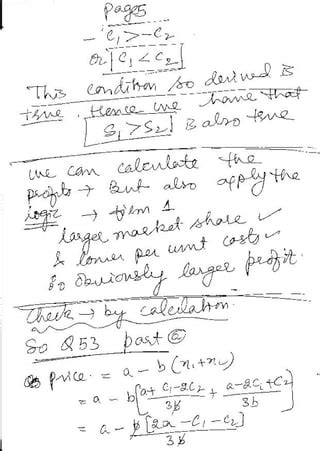 Page 5
- C₁ > -C₂
or C₁ < C₂
This condition so derived is
true. Hence we have that
S₁ > S₂ is also true
we can calculate the
profits → But also apply the
logic → firm 1
larger market share ✓
& lower per unit costs ✓
so obviously larger profit.
Check → by calculation.
So Q53 part ⓐ
Price = a - b(x₁+x₂)
= a - b[a+C₁-2C₂/3b + a-2C₁+C₂/3b]
= a - b[2a-C₁-C₂]/3b